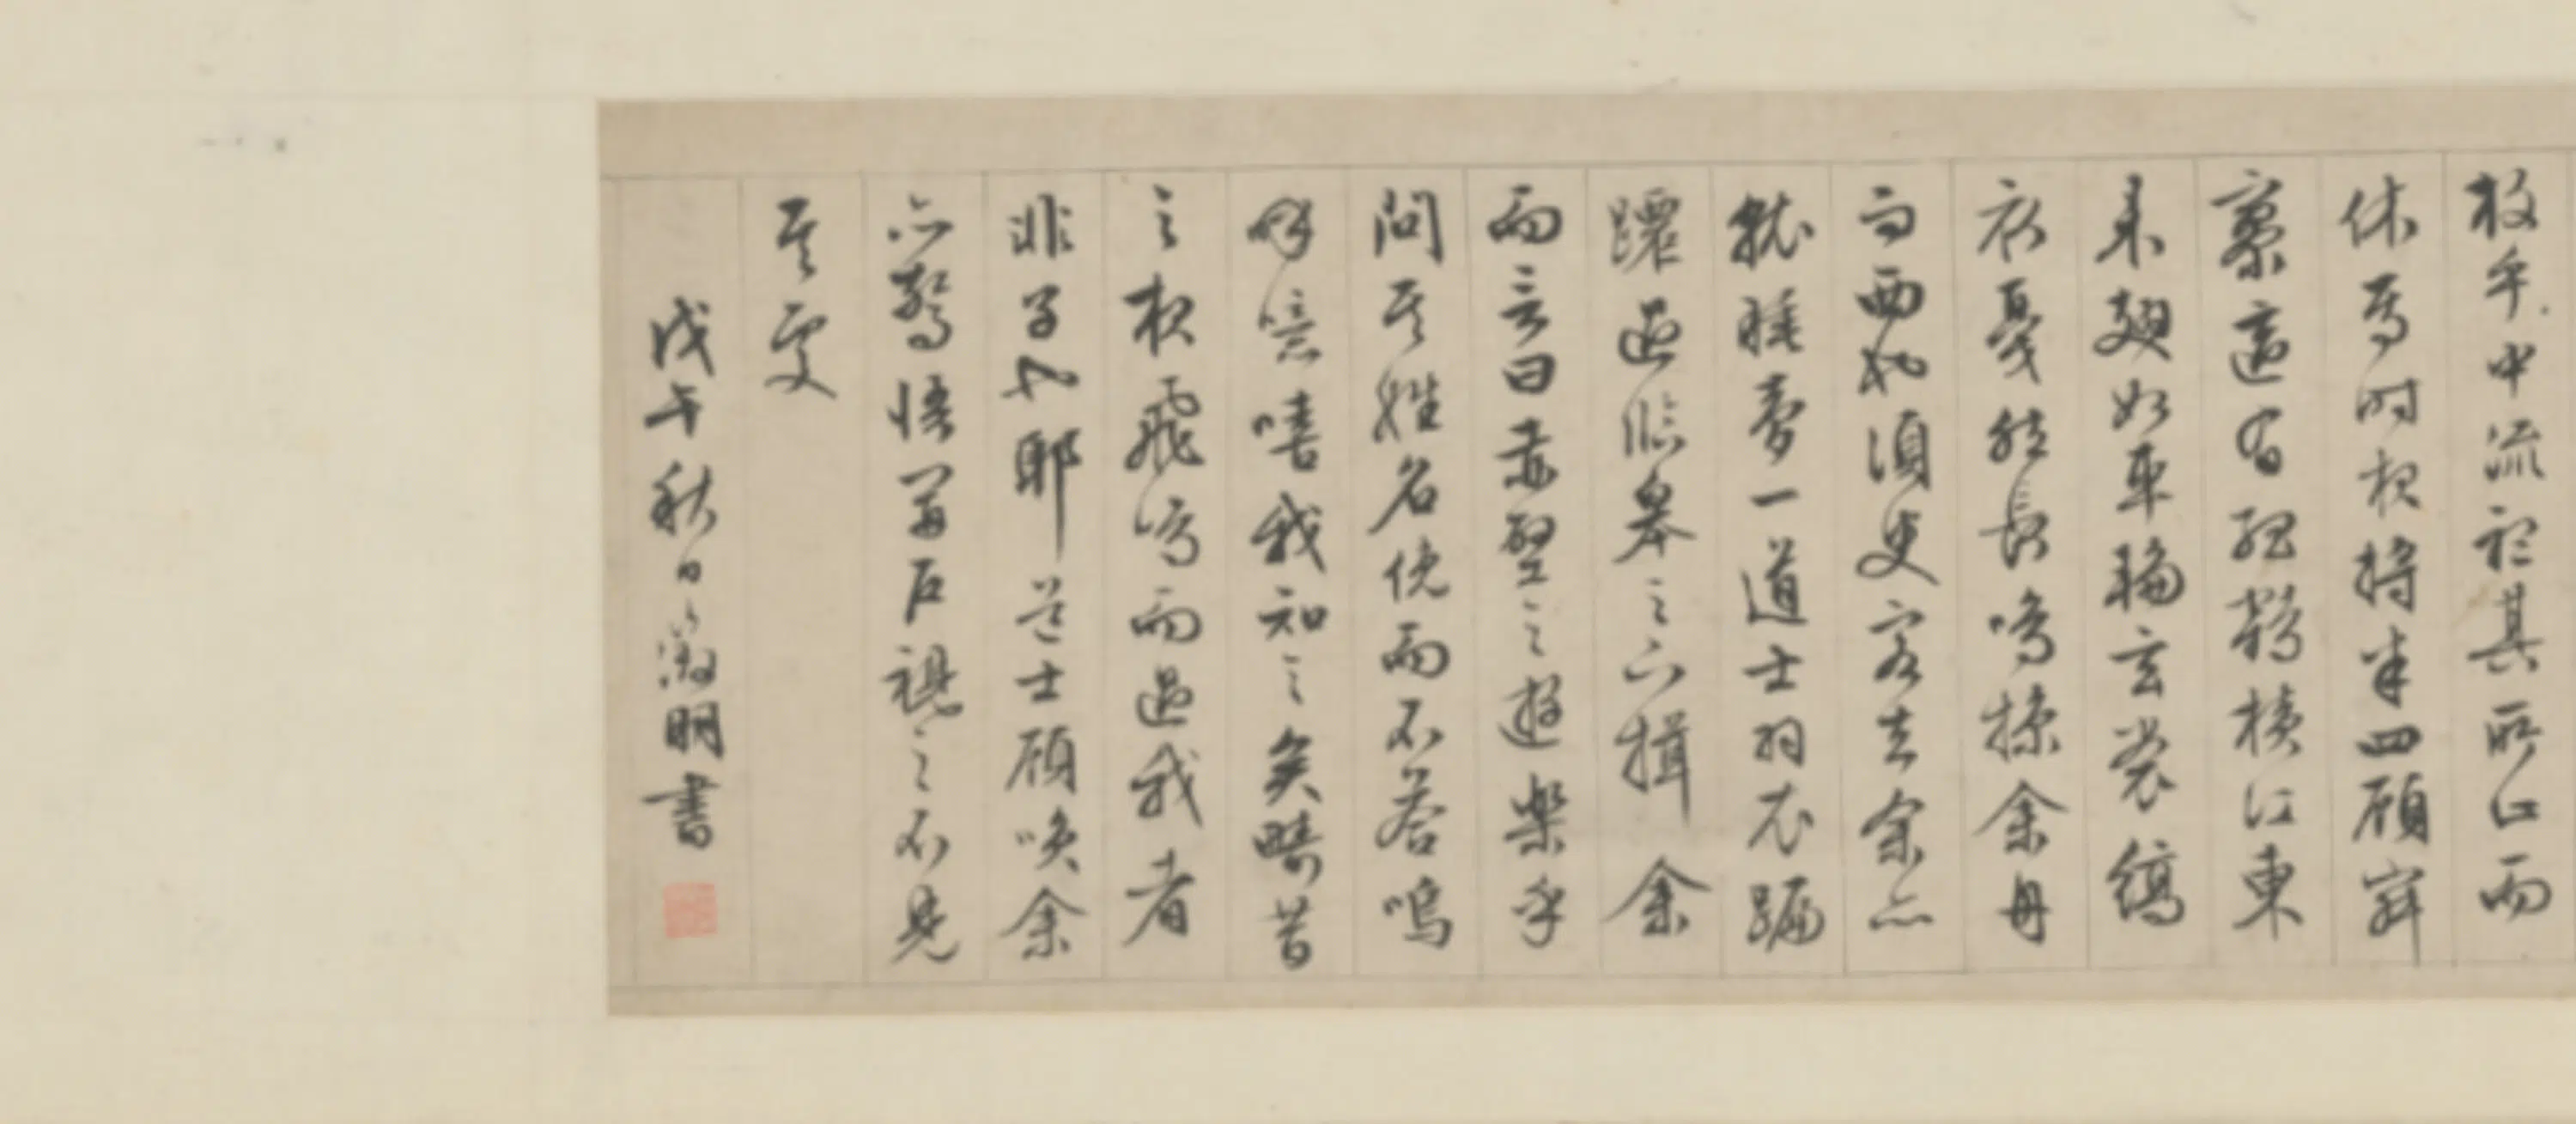 放乎中流聽其所止而
休焉時夜將半四顧寂
寥適有孤鶴橫江東
來翅如車輪玄裳縞
衣戛然長鳴掠余舟
而西也須臾客去余亦
就睡夢一道士羽衣蹁
躚過臨皋之下揖余
而言曰赤壁之遊樂乎
問其姓名俛而不荅嗚
呼噫嘻我知之矣疇昔
之夜飛鳴而過我者
非子也耶道士顧咲余
亦驚悟開戶視之不見
其處
戊午秋日徵明書